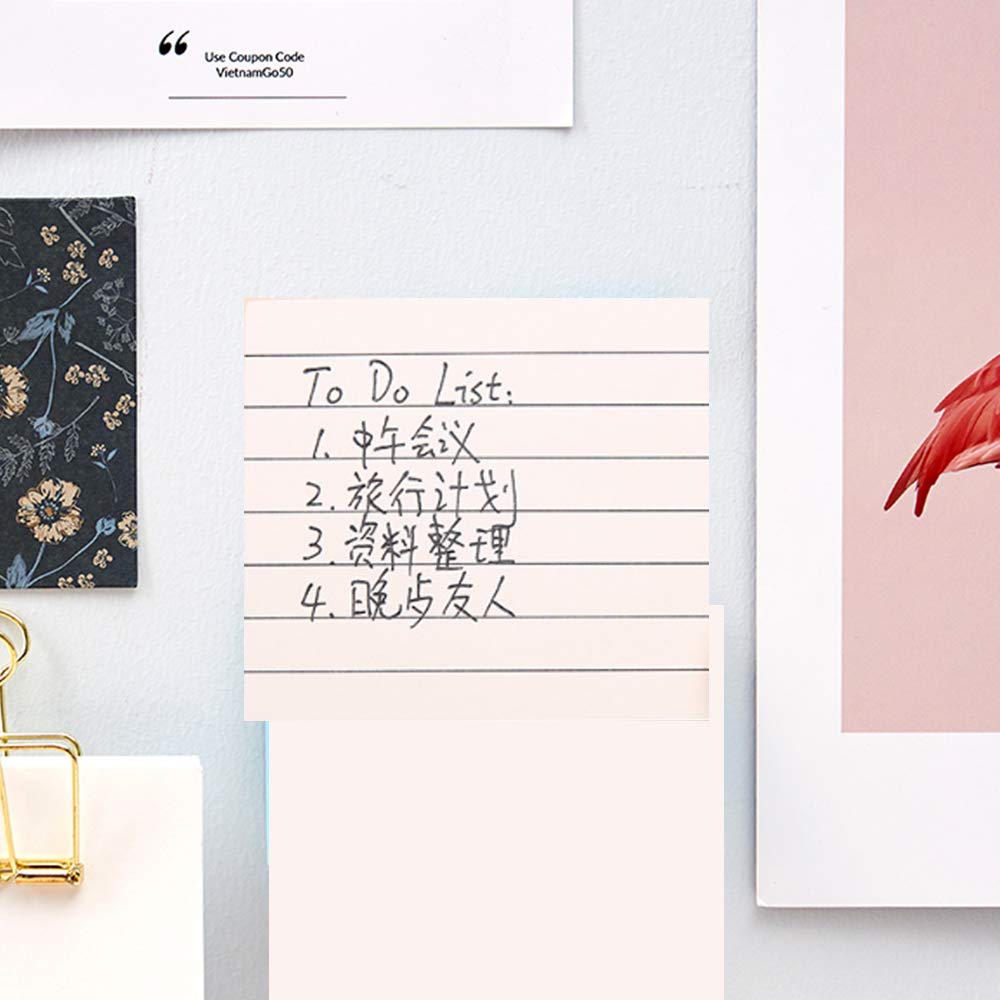 “
Use Coupon Code
VietnamGo50
To Do List:
1. 中午会议
2. 旅行计划
3. 资料整理
4. 晚与友人